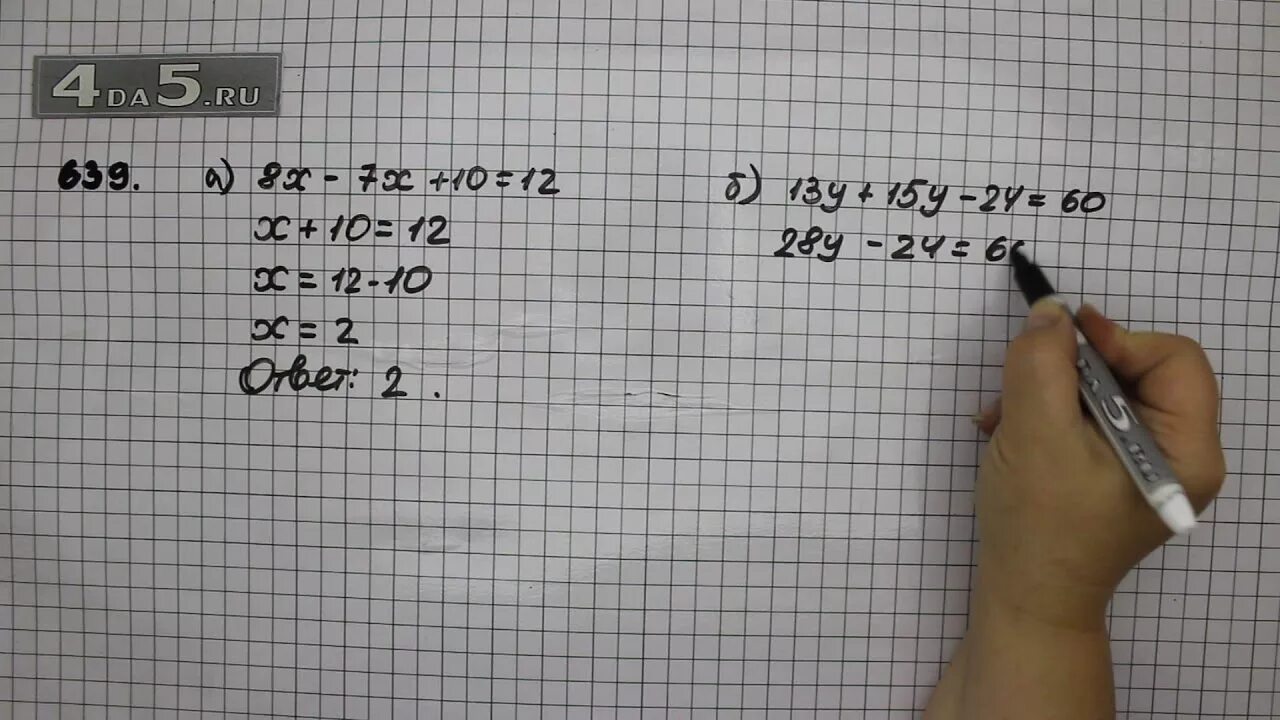 4DA5.RU
639. а) 8x - 7x + 10 = 12
x + 10 = 12
x = 12 - 10
x = 2
Ответ: 2.
б) 13y + 15y - 24 = 60
28y - 24 = 6